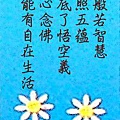 般若智慧
照五蘊
底了悟空義
心念佛
能有自在生活